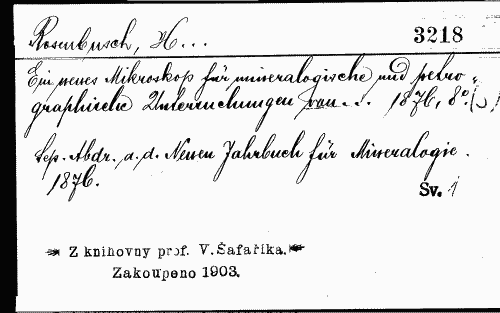 Rosenbusch, H...
3218
Ein neues Mikroskop für mineralogische und petro-
graphische Untersuchungen von... 1876, 8°.
Sep. Abdr. a. d. Neuen Jahrbuch für Mineralogie.
1876.
Sv. 1
Z knihovny prof. V. Šafaříka.
Zakoupeno 1903.